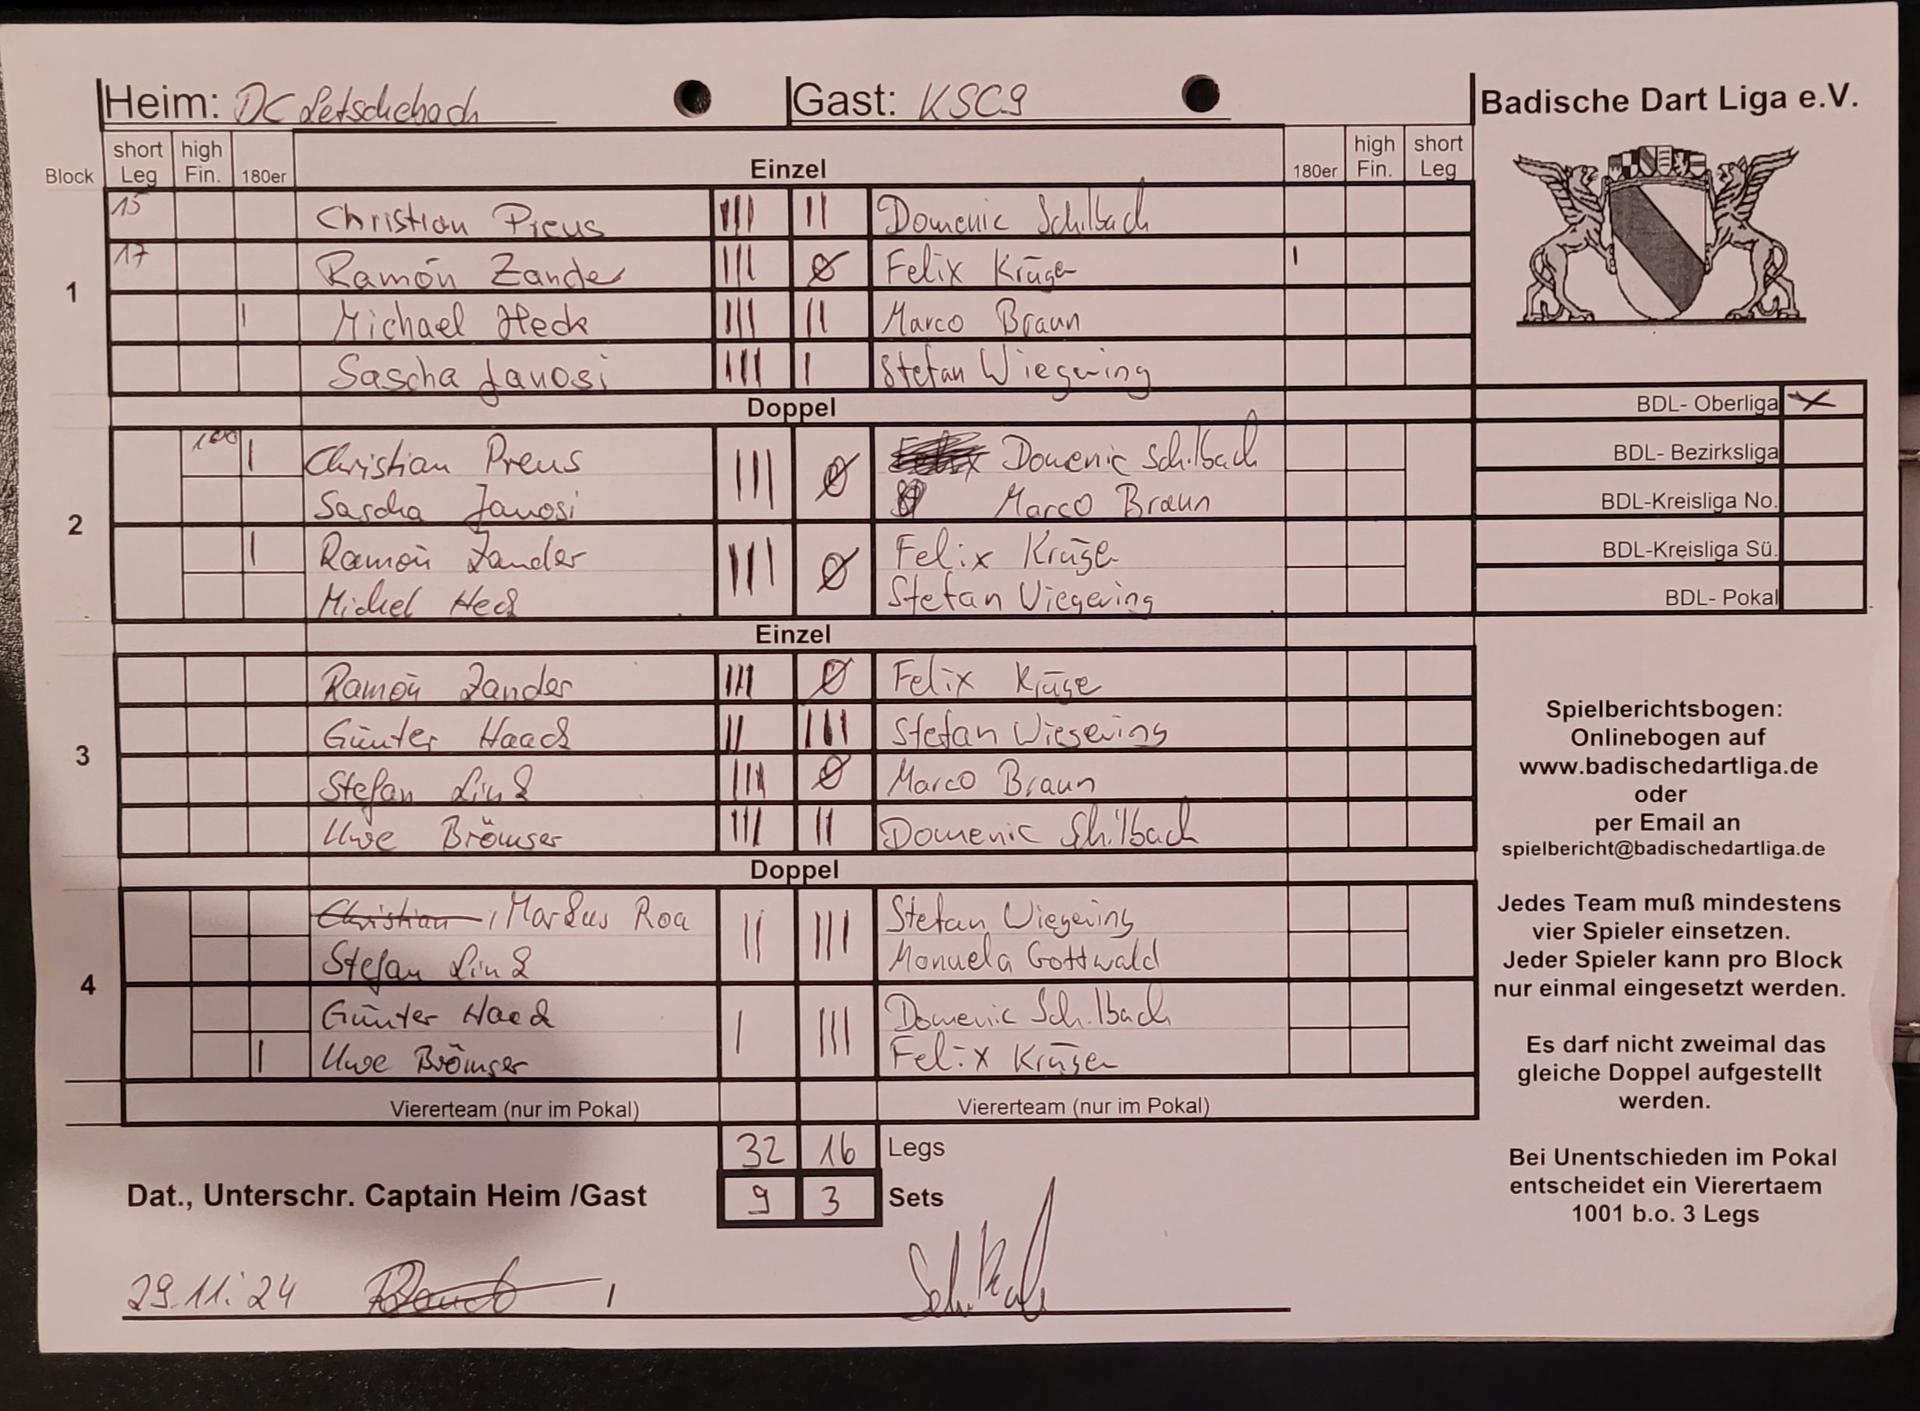 Heim: DC Letschebach Gast: KSC9 Badische Dart Liga e.V.
Block short Leg high Fin. 180er Einzel 180er high Fin. short Leg
1
15 Christian Preus III II Domenic Schilbach
17 Ramón Zander III Ø Felix Krüger I
I Michael Heck III II Marco Braun
Sascha Janosi III I Stefan Wiegering
Doppel
2
100 I Christian Preus III Ø Domenic Schilbach
Sascha Janosi Marco Braun
I Ramón Zander III Ø Felix Krüger
Michel Heck Stefan Wiegering
Einzel
3
Ramón Zander III Ø Felix Krüge
Günter Haack II III Stefan Wiegering
Stefan Link III Ø Marco Braun
Uwe Brömser III II Domenic Schilbach
Doppel
4
Christian, Markus Roa II III Stefan Wiegering
Stefan Link Manuela Gottwald
Günter Haack I III Domenic Schilbach
I Uwe Brömser Felix Krüger
Viererteam (nur im Pokal) Viererteam (nur im Pokal)
32 16 Legs
Dat., Unterschr. Captain Heim /Gast 9 3 Sets
29.11.24
BDL- Oberliga X
BDL- Bezirksliga
BDL-Kreisliga No.
BDL-Kreisliga Sü.
BDL- Pokal
Spielberichtsbogen:
Onlinebogen auf
www.badischedartliga.de
oder
per Email an
spielbericht@badischedartliga.de
Jedes Team muß mindestens
vier Spieler einsetzen.
Jeder Spieler kann pro Block
nur einmal eingesetzt werden.
Es darf nicht zweimal das
gleiche Doppel aufgestellt
werden.
Bei Unentschieden im Pokal
entscheidet ein Vierertaem
1001 b.o. 3 Legs